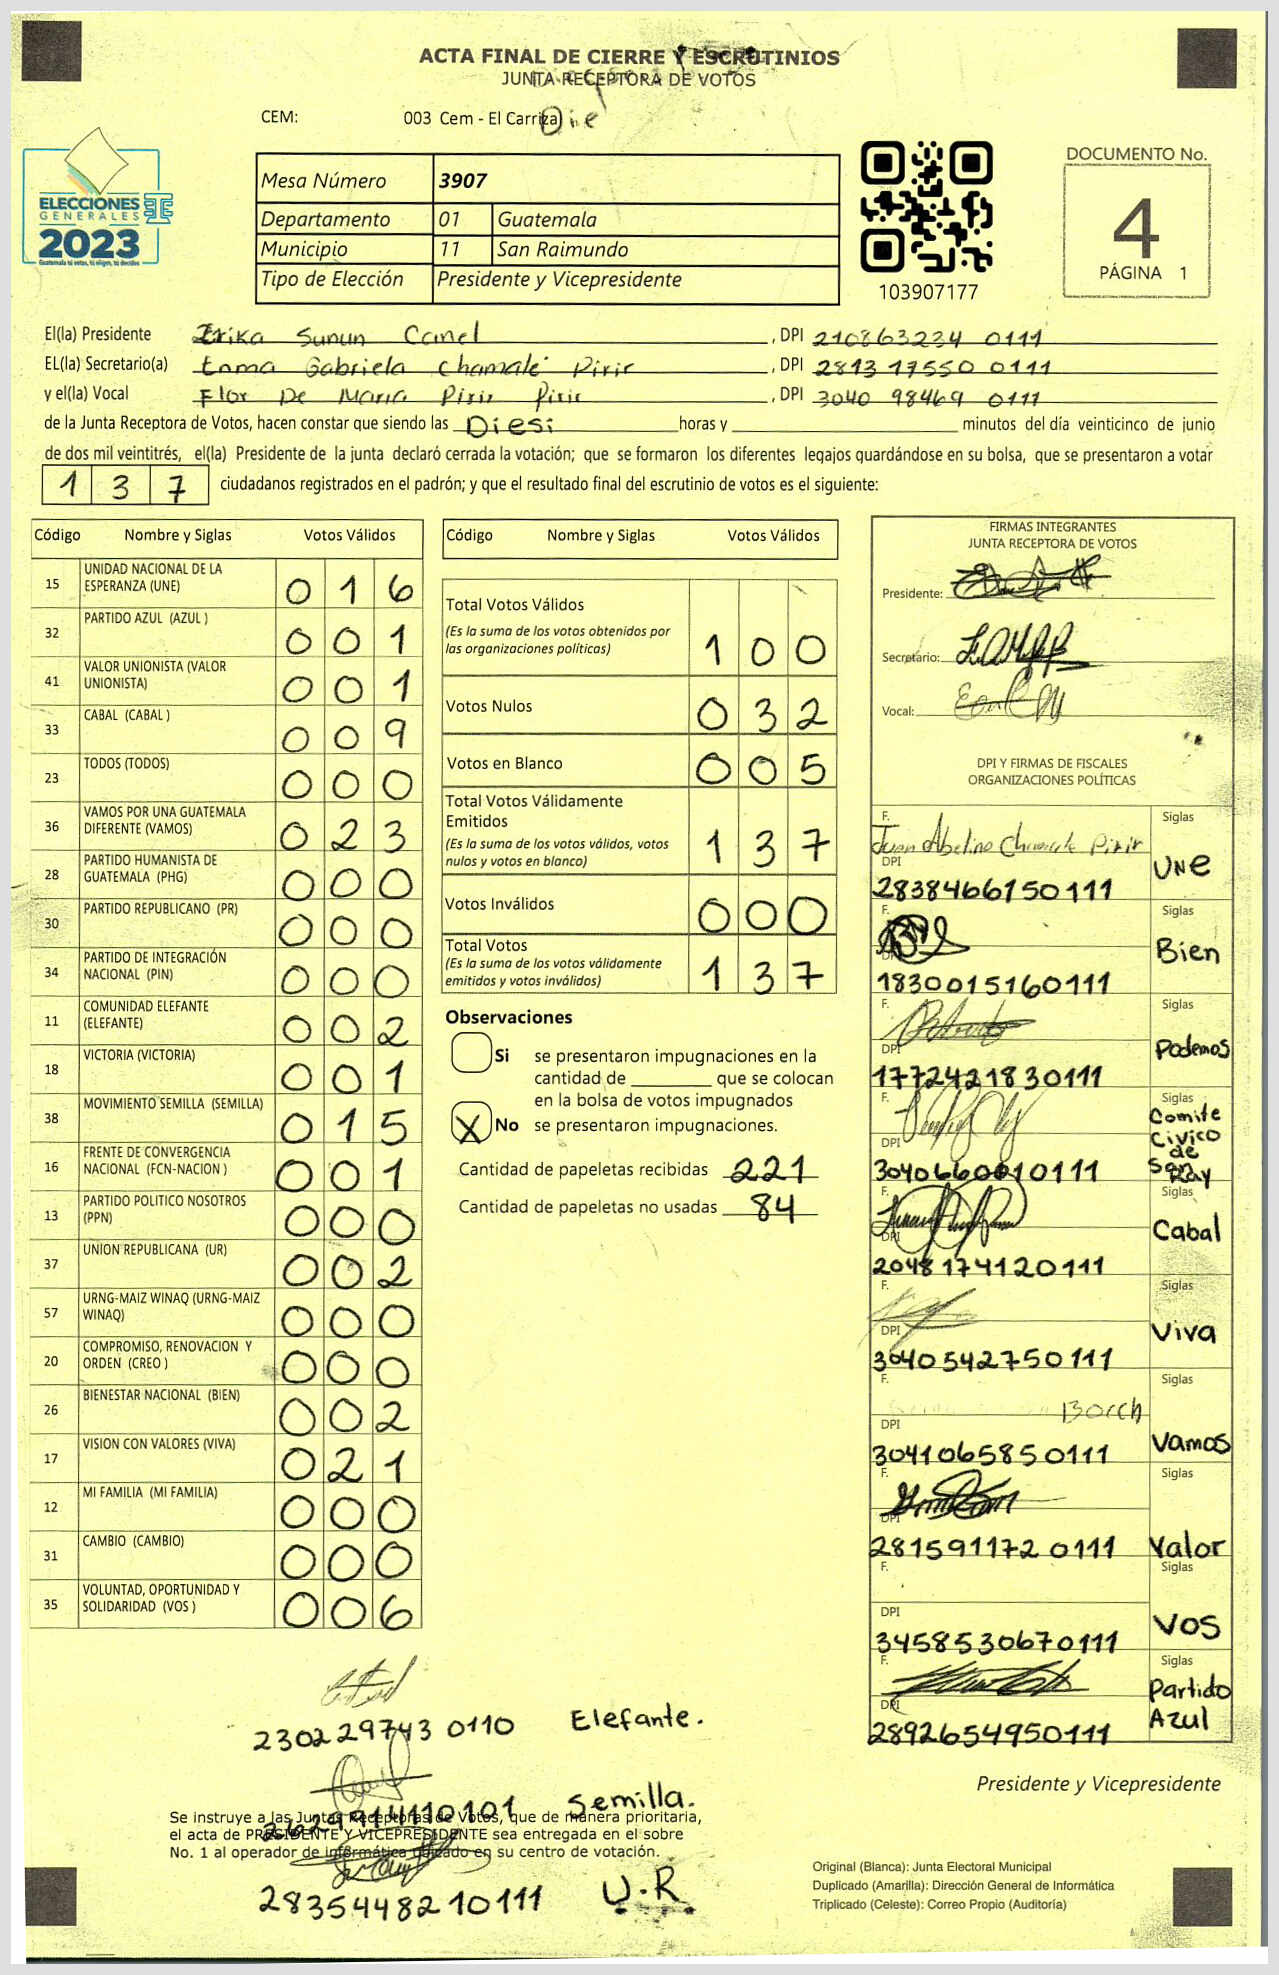 ACTA FINAL DE CIERRE Y ESCRUTINIOS
JUNTA RECEPTORA DE VOTOS
CEM: 003 Cem - El Carrizal
ELECCIONES
GENERALES
2023
Guatemala tú votas, tú eliges, tú decides
Mesa Número 3907
Departamento 01 Guatemala
Municipio 11 San Raimundo
Tipo de Elección Presidente y Vicepresidente
103907177
DOCUMENTO No.
4
PÁGINA 1
El(la) Presidente Erika Sunun Canel, DPI 210863234 0111
EL(la) Secretario(a) Enma Gabriela Chamalé Pirir, DPI 2813 17550 0111
y el(la) Vocal Flor De Maria Pirir Pirir, DPI 3040 98469 0111
de la Junta Receptora de Votos, hacen constar que siendo las Diesi horas y minutos del día veinticinco de junio
de dos mil veintitrés, el(la) Presidente de la junta declaró cerrada la votación; que se formaron los diferentes legajos guardándose en su bolsa, que se presentaron a votar
137 ciudadanos registrados en el padrón; y que el resultado final del escrutinio de votos es el siguiente:
Código Nombre y Siglas Votos Válidos
15 UNIDAD NACIONAL DE LA
ESPERANZA (UNE) 016
32 PARTIDO AZUL (AZUL ) 001
41 VALOR UNIONISTA (VALOR
UNIONISTA) 001
33 CABAL (CABAL ) 009
23 TODOS (TODOS) 000
36 VAMOS POR UNA GUATEMALA
DIFERENTE (VAMOS) 023
28 PARTIDO HUMANISTA DE
GUATEMALA (PHG) 000
30 PARTIDO REPUBLICANO (PR) 000
34 PARTIDO DE INTEGRACIÓN
NACIONAL (PIN) 000
11 COMUNIDAD ELEFANTE
(ELEFANTE) 002
18 VICTORIA (VICTORIA) 001
38 MOVIMIENTO SEMILLA (SEMILLA) 015
16 FRENTE DE CONVERGENCIA
NACIONAL (FCN-NACION ) 001
13 PARTIDO POLITICO NOSOTROS
(PPN) 000
37 UNION REPUBLICANA (UR) 002
57 URNG-MAIZ WINAQ (URNG-MAIZ
WINAQ) 000
20 COMPROMISO, RENOVACION Y
ORDEN (CREO ) 000
26 BIENESTAR NACIONAL (BIEN) 002
17 VISION CON VALORES (VIVA) 021
12 MI FAMILIA (MI FAMILIA) 000
31 CAMBIO (CAMBIO) 000
35 VOLUNTAD, OPORTUNIDAD Y
SOLIDARIDAD (VOS ) 006
Código Nombre y Siglas Votos Válidos
Total Votos Válidos
(Es la suma de los votos obtenidos por
las organizaciones políticas) 100
Votos Nulos 032
Votos en Blanco 005
Total Votos Válidamente
Emitidos
(Es la suma de los votos válidos, votos
nulos y votos en blanco) 137
Votos Inválidos 000
Total Votos
(Es la suma de los votos válidamente
emitidos y votos inválidos) 137
Observaciones
Si se presentaron impugnaciones en la
cantidad de que se colocan
en la bolsa de votos impugnados
X No se presentaron impugnaciones.
Cantidad de papeletas recibidas 221
Cantidad de papeletas no usadas 84
FIRMAS INTEGRANTES
JUNTA RECEPTORA DE VOTOS
Presidente:
Secretario:
Vocal:
DPI Y FIRMAS DE FISCALES
ORGANIZACIONES POLÍTICAS
F. Juan Abelino Chamale Pirir Siglas
DPI 2838466150111 UNE
F. Siglas
DPI 1830015160111 Bien
F. Siglas
DPI 1772421830111 Podemos
F. Siglas
DPI 3040660010111 Comite
Civico
de
San
Ray
F. Siglas
DPI 2048174120111 Cabal
F. Siglas
DPI 3040542750111 Viva
F. Siglas
DPI 3041065850111 Vamos
F. Siglas
DPI 281591172 0111 Valor
F. Siglas
DPI 3458530670111 VOS
F. Siglas
DPI 2892654950111 Partido
Azul
230229743 0110 Elefante.
2629914110101 Semilla.
2835448210111 U.R
Presidente y Vicepresidente
Se instruye a las Juntas Receptoras de Votos, que de manera prioritaria,
el acta de PRESIDENTE Y VICEPRESIDENTE sea entregada en el sobre
No. 1 al operador de informática ubicado en su centro de votación.
Original (Blanca): Junta Electoral Municipal
Duplicado (Amarilla): Dirección General de Informática
Triplicado (Celeste): Correo Propio (Auditoría)